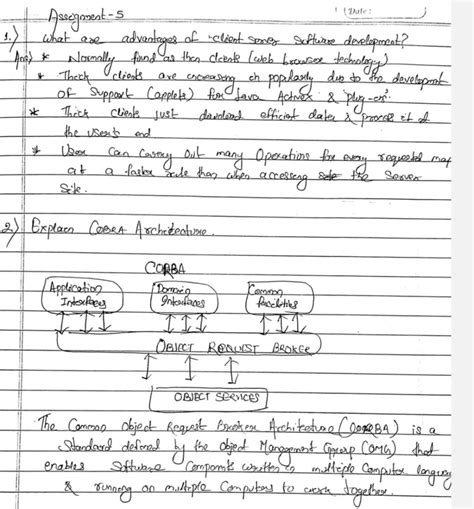 Assignment-5
Date:
1.) What are advantages of client server Software development?
Ans) * Normally find as then clients (web browser technology)
* Thick clients are increasing in popularly due to the development
OF Support (applets) for Java Activex & plug-on's
* Thick clients just download efficient data & process it at
the users end
* User can carry out many Operations for every requested map
at a faster rule than when accessing the Server
Site.
2.) Explain CORBA Architecture.
CORBA
Application Interfaces
Domain Interfaces
Common Facilities
OBJECT REQUEST BROKER
OBJECT SERVICES
The Common Object Request Broker Architecture (CORBA) is a
Standard defined by the Object Management Group (OMG) that
enables Software Components written in multiple Computer language
& running on multiple Computers to work together.